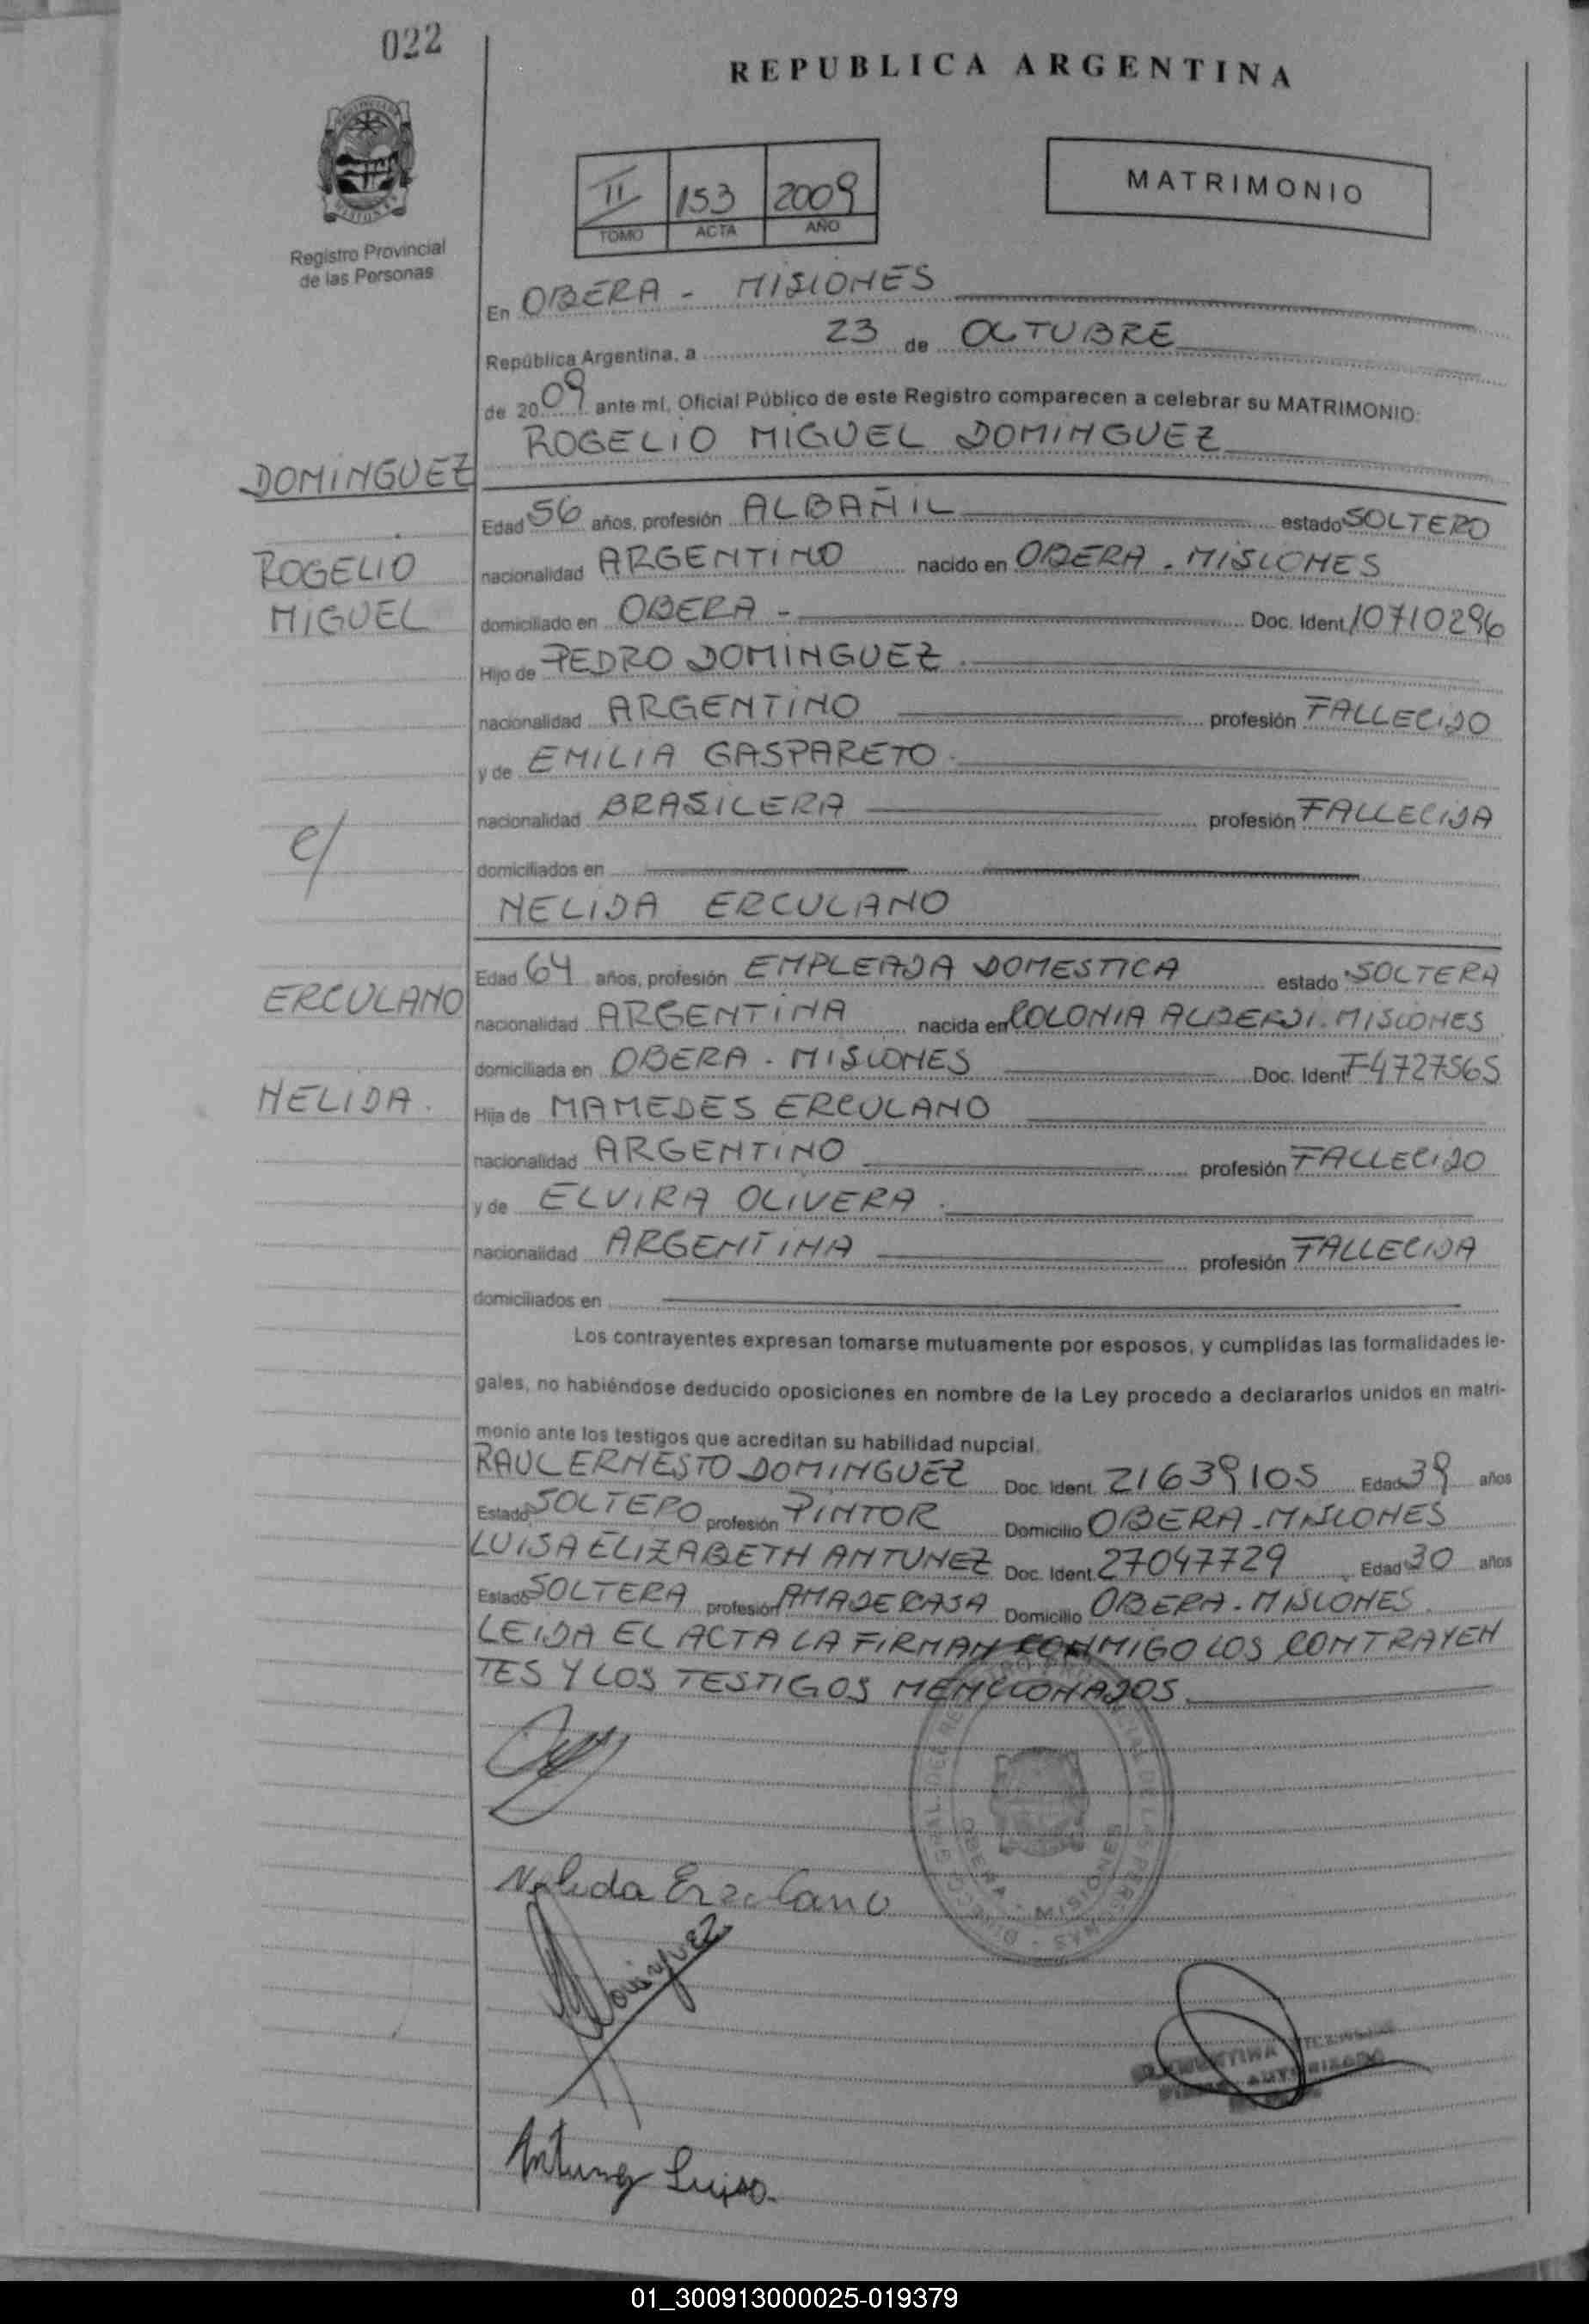 022
REPUBLICA ARGENTINA
II 153 2009
TOMO ACTA AÑO
MATRIMONIO
Registro Provincial
de las Personas
En OBERA - MISIONES
República Argentina, a 23 de OCTUBRE
de 2009 ante mí, Oficial Público de este Registro comparecen a celebrar su MATRIMONIO:
ROGELIO MIGUEL DOMINGUEZ
DOMINGUEZ
Edad 56 años, profesión ALBAÑIL estado SOLTERO
ROGELIO
nacionalidad ARGENTINO nacido en OBERA - MISIONES
MIGUEL
domiciliado en OBERA - Doc. Ident. 10710296
Hijo de PEDRO DOMINGUEZ
nacionalidad ARGENTINO profesión FALLECIDO
y de EMILIA GASPARETO
nacionalidad BRASILERA profesión FALLECIDA
c/
domiciliados en
NELIDA ERCULANO
Edad 64 años, profesión EMPLEADA DOMESTICA estado SOLTERA
ERCULANO
nacionalidad ARGENTINA nacida en COLONIA ALBERDI - MISIONES
domiciliada en OBERA - MISIONES Doc. Ident. F4727565
NELIDA.
Hija de MAMEDES ERCULANO
nacionalidad ARGENTINO profesión FALLECIDO
y de ELVIRA OLIVERA
nacionalidad ARGENTINA profesión FALLECIDA
domiciliados en
Los contrayentes expresan tomarse mutuamente por esposos, y cumplidas las formalidades le-
gales, no habiéndose deducido oposiciones en nombre de la Ley procedo a declararlos unidos en matri-
monio ante los testigos que acreditan su habilidad nupcial.
RAUL ERNESTO DOMINGUEZ Doc. Ident. 21639105 Edad 39 años
Estado SOLTERO profesión PINTOR Domicilio OBERA - MISIONES
LUISA ELIZABETH ANTUNEZ Doc. Ident. 27047729 Edad 30 años
Estado SOLTERA profesión AMA DE CASA Domicilio OBERA - MISIONES
LEIDA EL ACTA LA FIRMAN CONMIGO LOS CONTRAYEN
TES Y LOS TESTIGOS MENCIONADOS
OBERA - MISIONES
Nelida Erculano
Dominguez
Antunez Luisa.
01_300913000025-019379